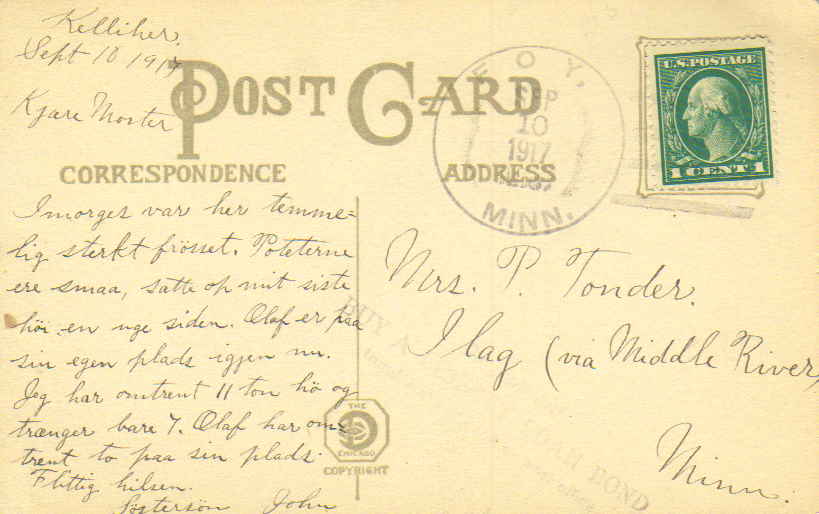 Kelliher,
Sept 10 1917
Kjære Moster
POST CARD
CORRESPONDENCE
ADDRESS
FOY,
SEP
10
1917
MINN.
U.S.POSTAGE
1 CENT 1
Imorges var her temme=
lig sterkt frösset. Poteterne
ere smaa, satte op mit siste
höi en uge siden. Olaf er paa
sin egen plads igjen nu.
Jeg har omtrent 11 ton hö og
trænger bare 7. Olaf har om=
trent to paa sin plads.
Flittig hilsen.
Söstersön John
Mrs. P. Tonder.
Ilag (via Middle River,
Minn.
BUY A
BOND
THE
CHICAGO
COPYRIGHT